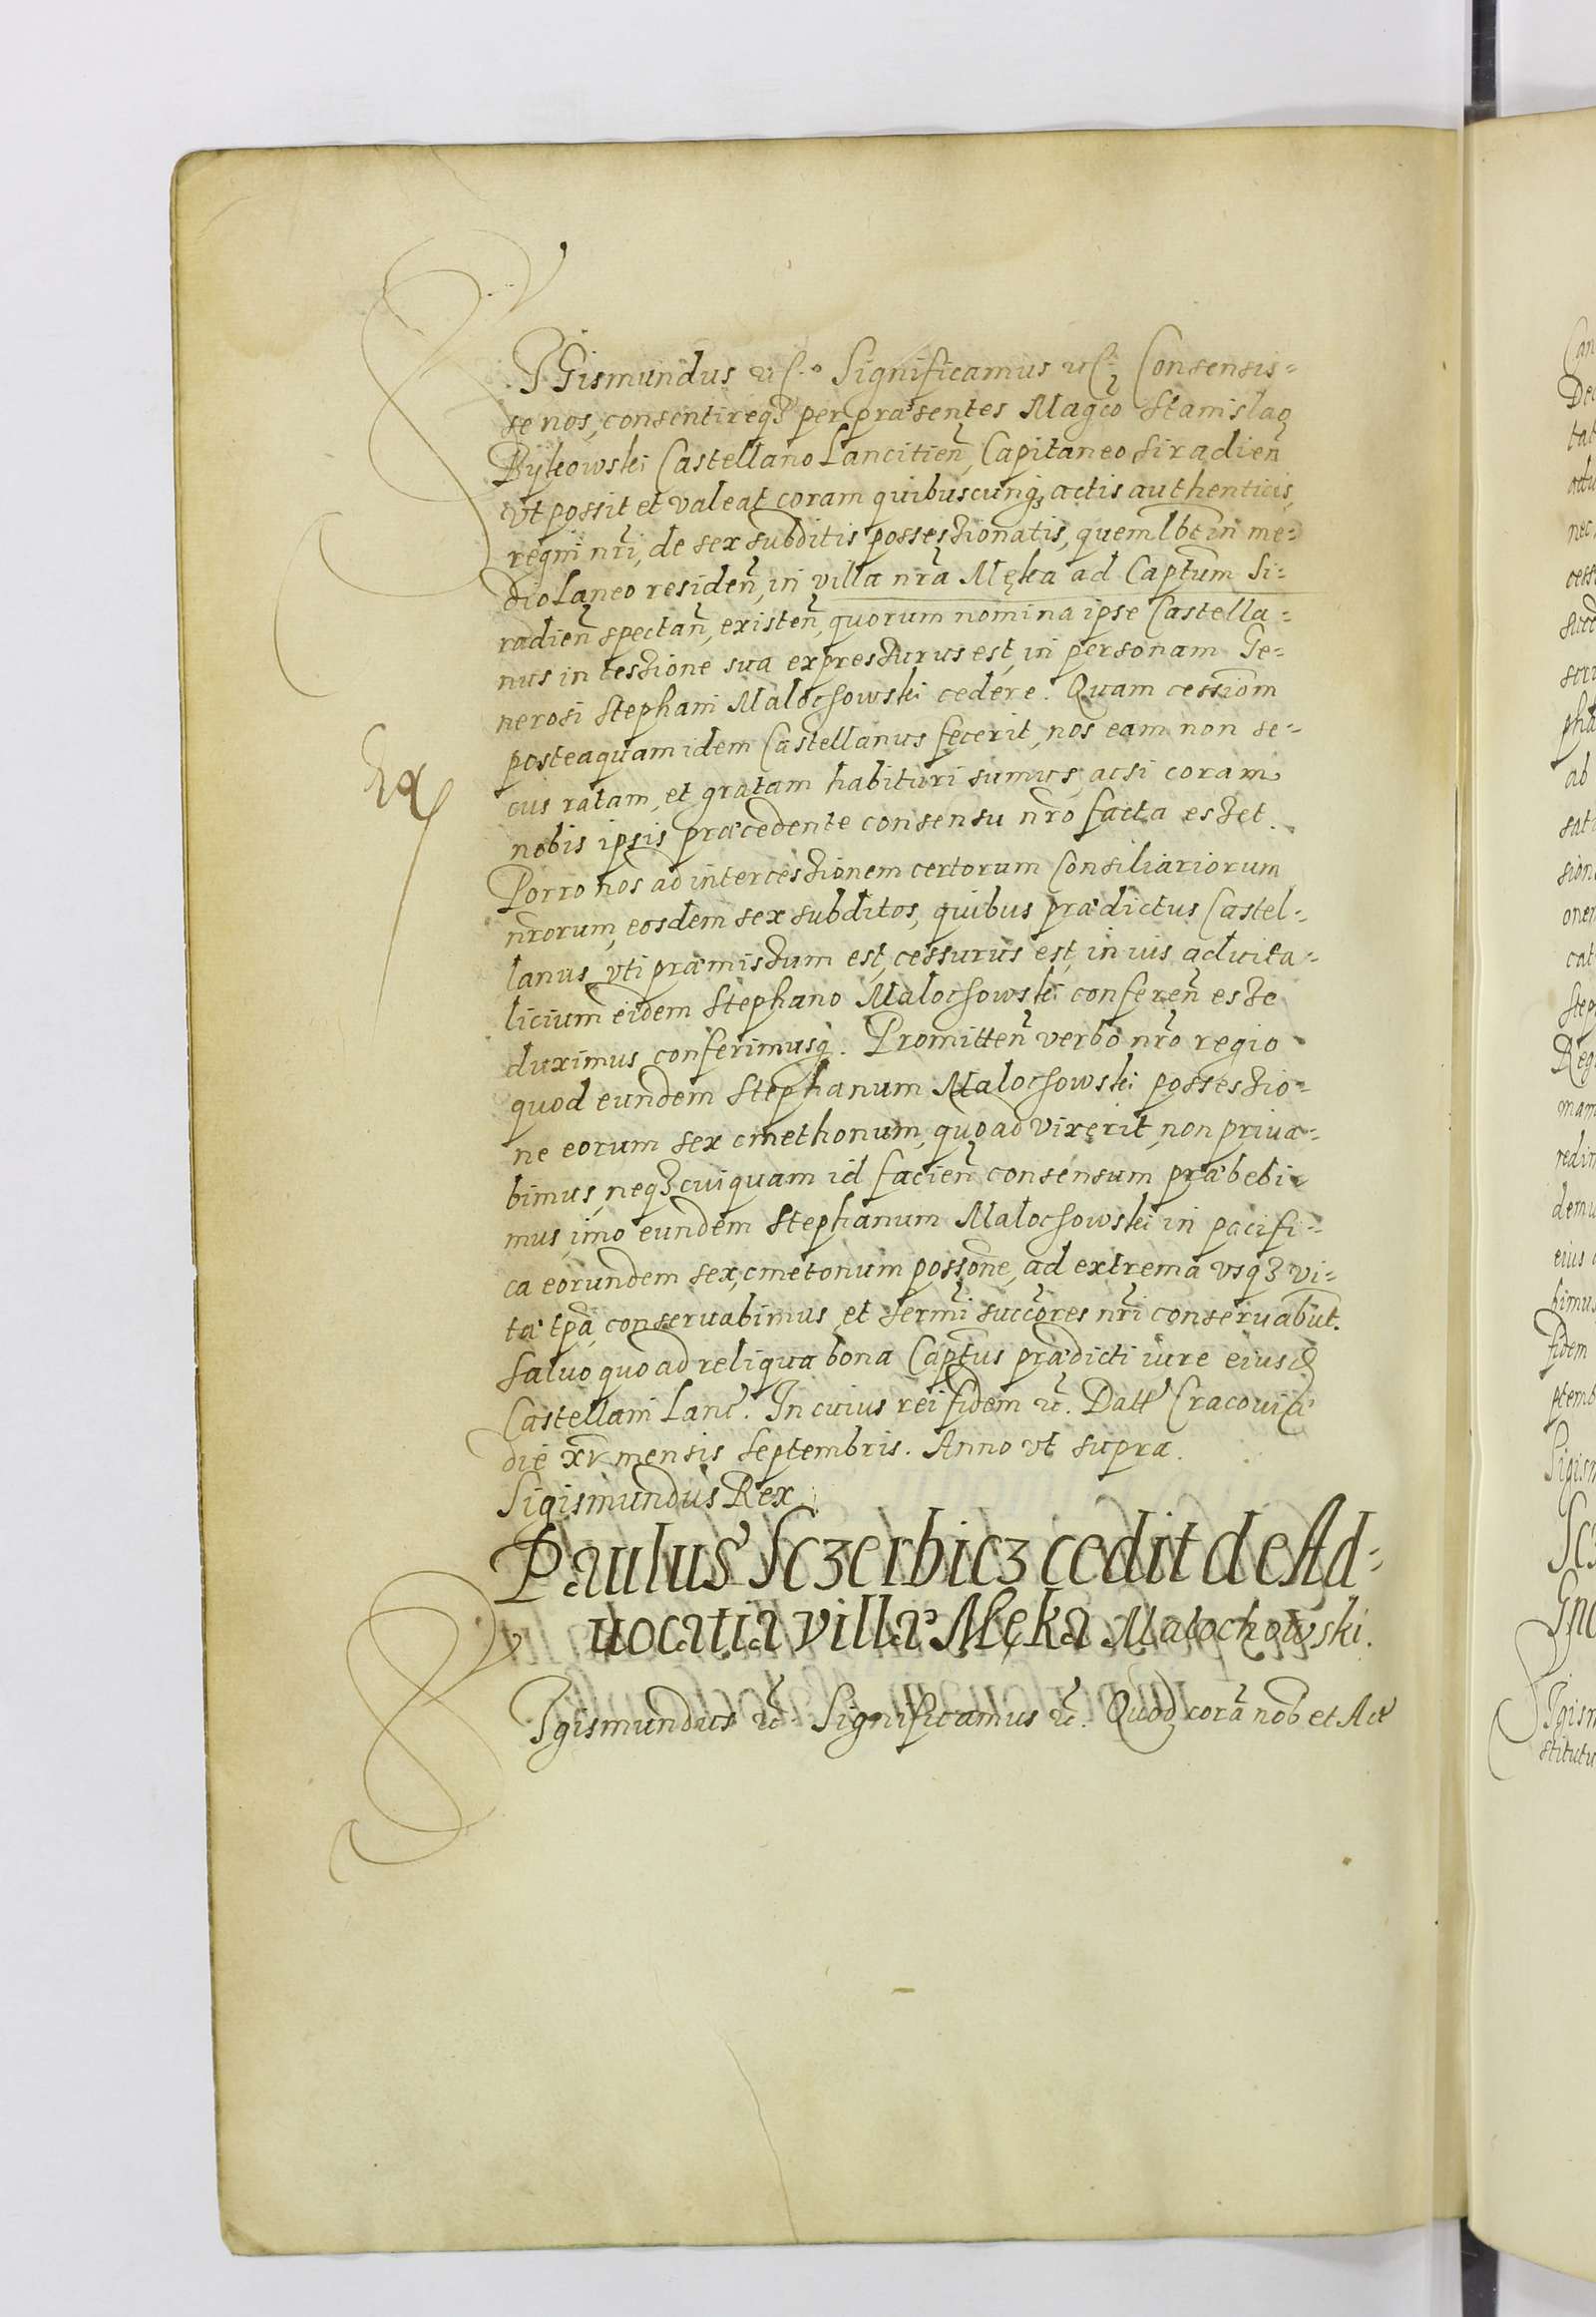 SIGismundus etc. Significamus etc. Consensis-
se nos, consentireqꝫ per præsentes Magco Stanislao
Bykowski Castellano Lancitien̄, Capitaneo Siradien̄
vt possit et valeat coram quibuscunqꝫ actis authenticis
regni nr̄i, de sex subditis possessionatis, quemlbt in me-
dio Laneo residen̄, in villa nr̄a Męka ad Captum Si-
radien̄ spectan̄, existen̄, quorum nomina ipse Castella-
nus in cessione sua expressurus est, in personam Ge-
nerosi Stephani Malochowski cedere. Quam cessiom
posteaquam idem Castellanus fecerit, nos eam non se-
cus ratam, et gratam habituri sumus, acsi coram
nobis ipsis præcedente consensu nr̄o facta esset.
Porro nos ad intercessionem certorum Consiliariorum
nr̄orum, eosdem sex subditos, quibus prædictus Castel-
lanus vti præmissum est, cessurus est, in ius aduita-
licium eidem Stephano Malochowski conferen̄ esse
duximus conferimusq. Promitten̄ verbo nr̄o regio
quod eundem Stephanum Malochowski possessio-
ne eorum sex cmethonum, quoad vixerit, non priua-
bimus, neqꝫ cuiquam id facien̄ consensum præbebi-
mus, imo eundem Stephanum Malochowski in pacifi-
ca eorundem sex cmetonum possone, ad extrema vsqꝫ vi-
tæ tpa, conseruabimus, et sermi succores nr̄i conseruabut.
Saluo quo ad reliqua bona Captus prædicti iure eiusd
Castellani Lanc. In cuius rei fidem etc. Datt Cracouiæ
die xv mensis Septembris. Anno vt supra.
Sigismundus Rex
Paulus Sczerbicz cedit de Ad-
uocatia villæ Męka Malochowski.
SIgismundus etc. Significamus etc. Quod corā nob et Act